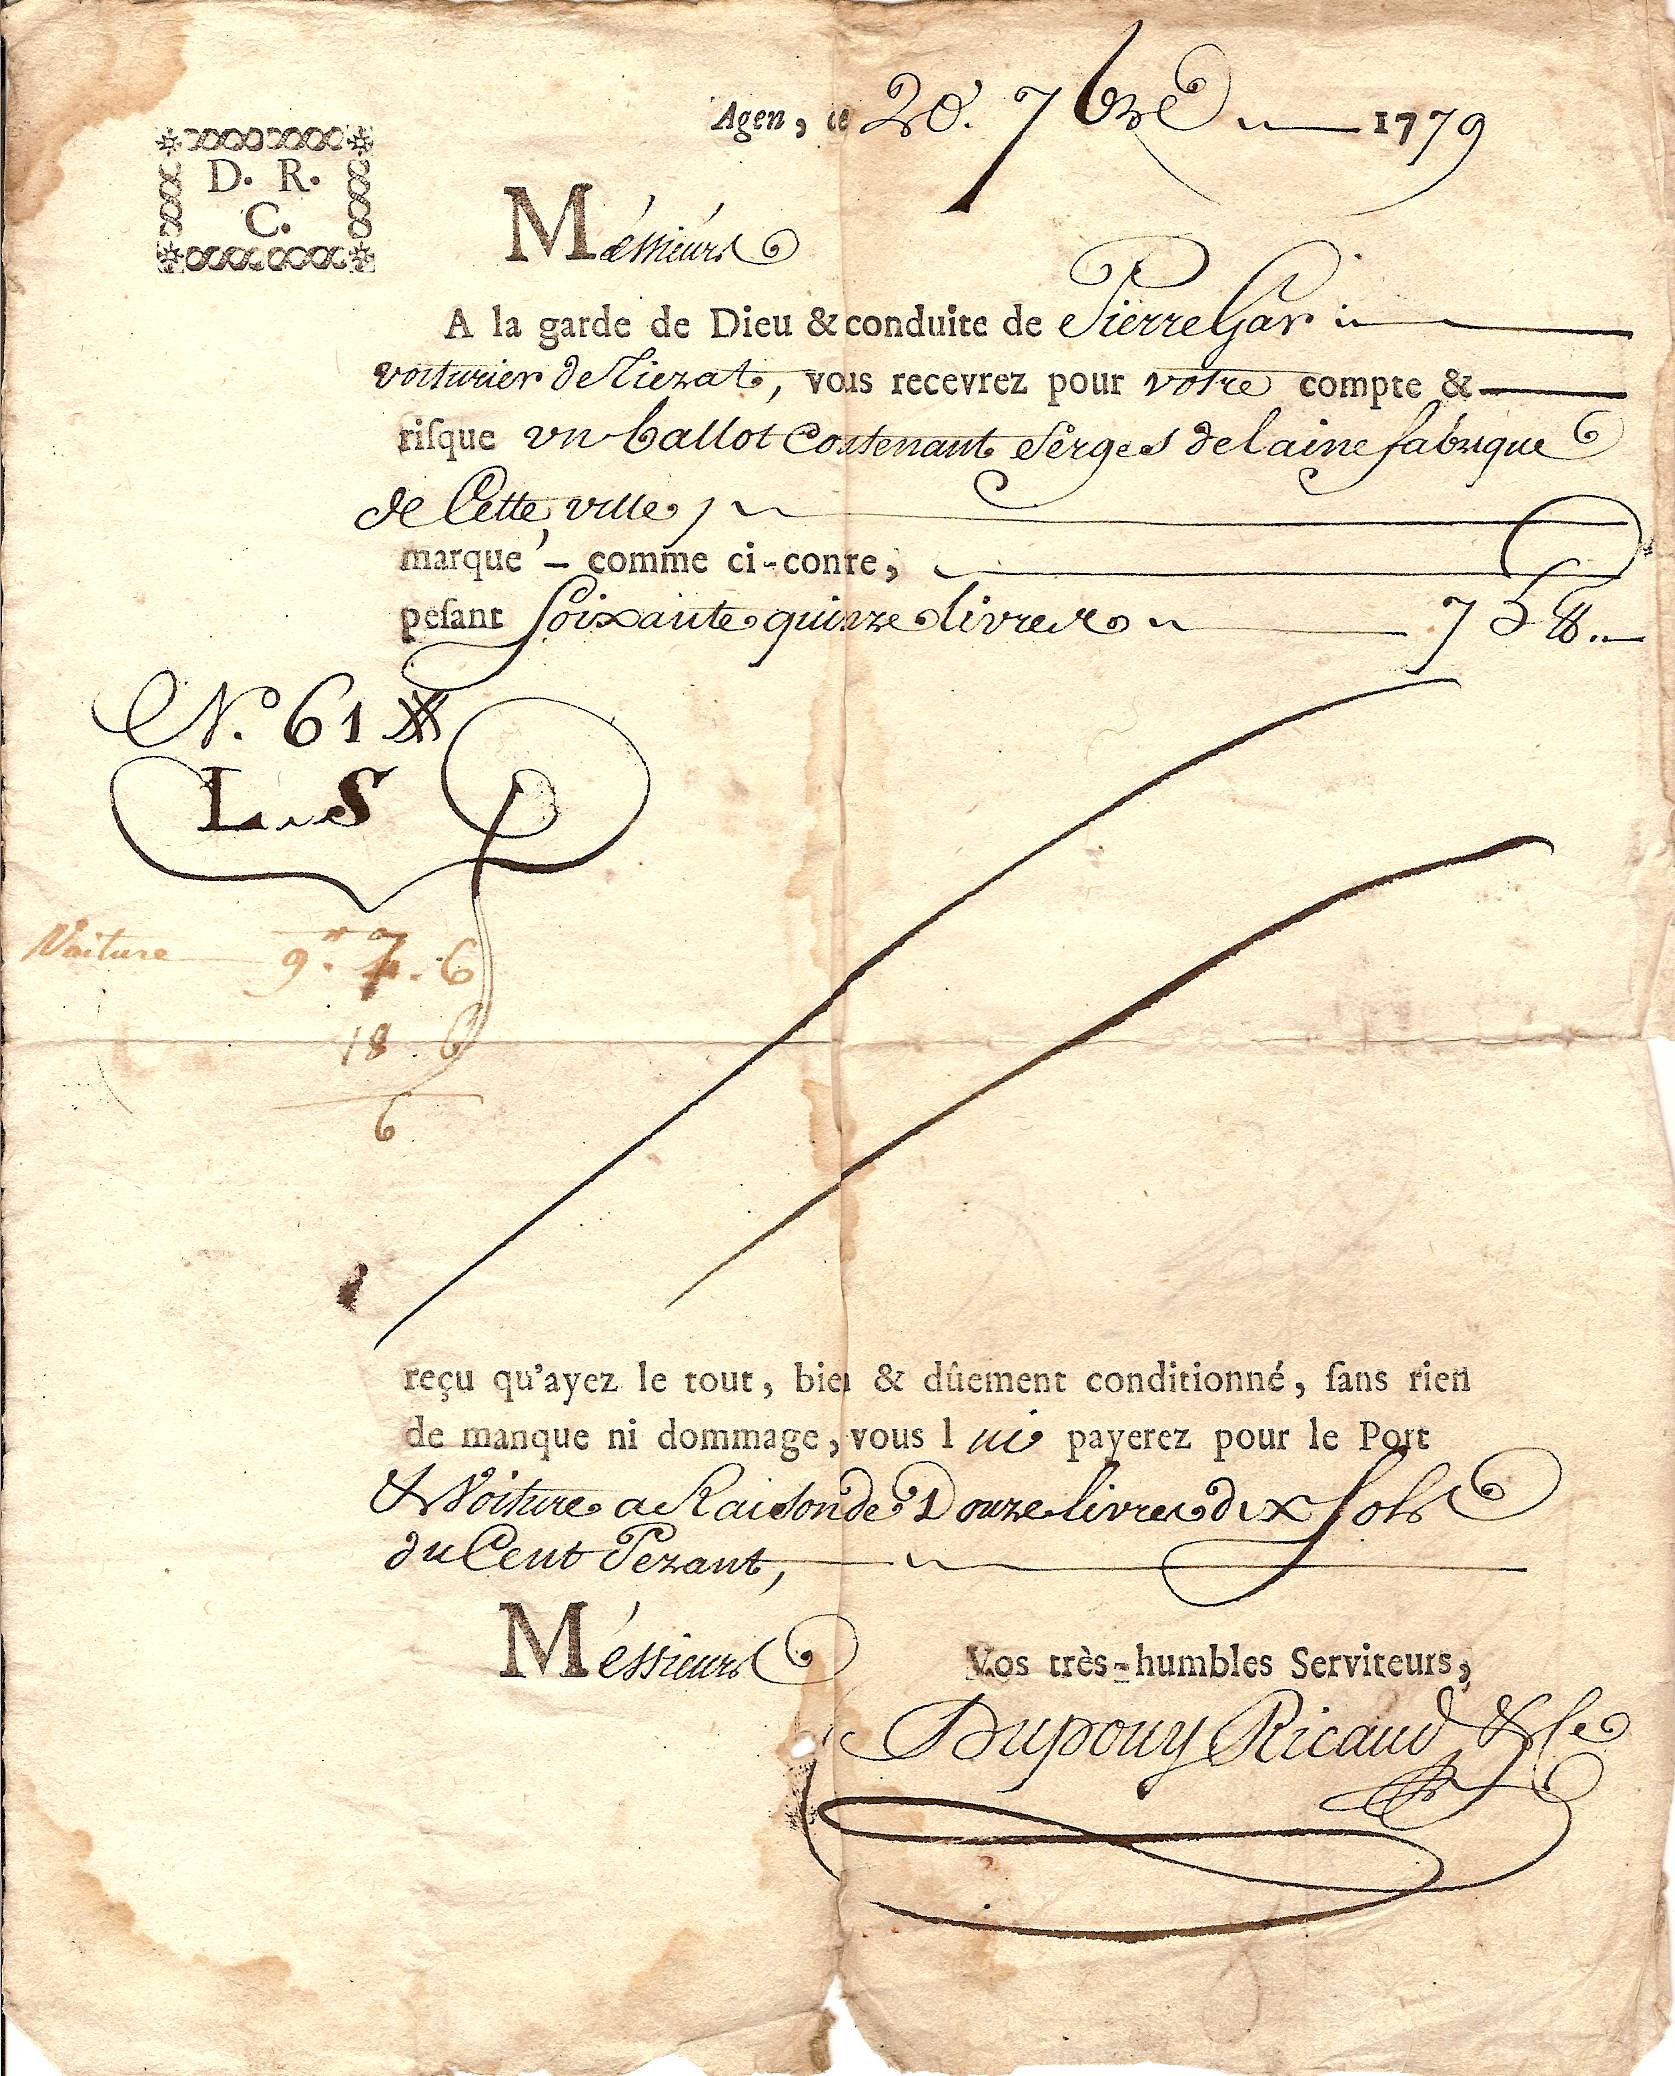 Agen, ce 20. 7bre 1779
D. R.
C.
Méssieurs
A la garde de Dieu & conduite de Pierre Gar
voiturier de Tiezat, vous recevrez pour votre compte &
risque un ballot Contenant Serges de laine fabrique
de Cette ville,
marqué comme ci-contre,
pesant Soixante quinze livres 75 lb.
N.º 61
L. S
Voiture 9.tt 7. 6
18. 6
6
reçu qu'ayez le tout, bien & dûement conditionné, sans rien
de manque ni dommage, vous lui payerez pour le Port
& Voiture a Raison de Douze livres dix Sols
du Cent Pezant,
Méssieurs
Vos très-humbles Serviteurs,
Dupouy Ricaud & Ce